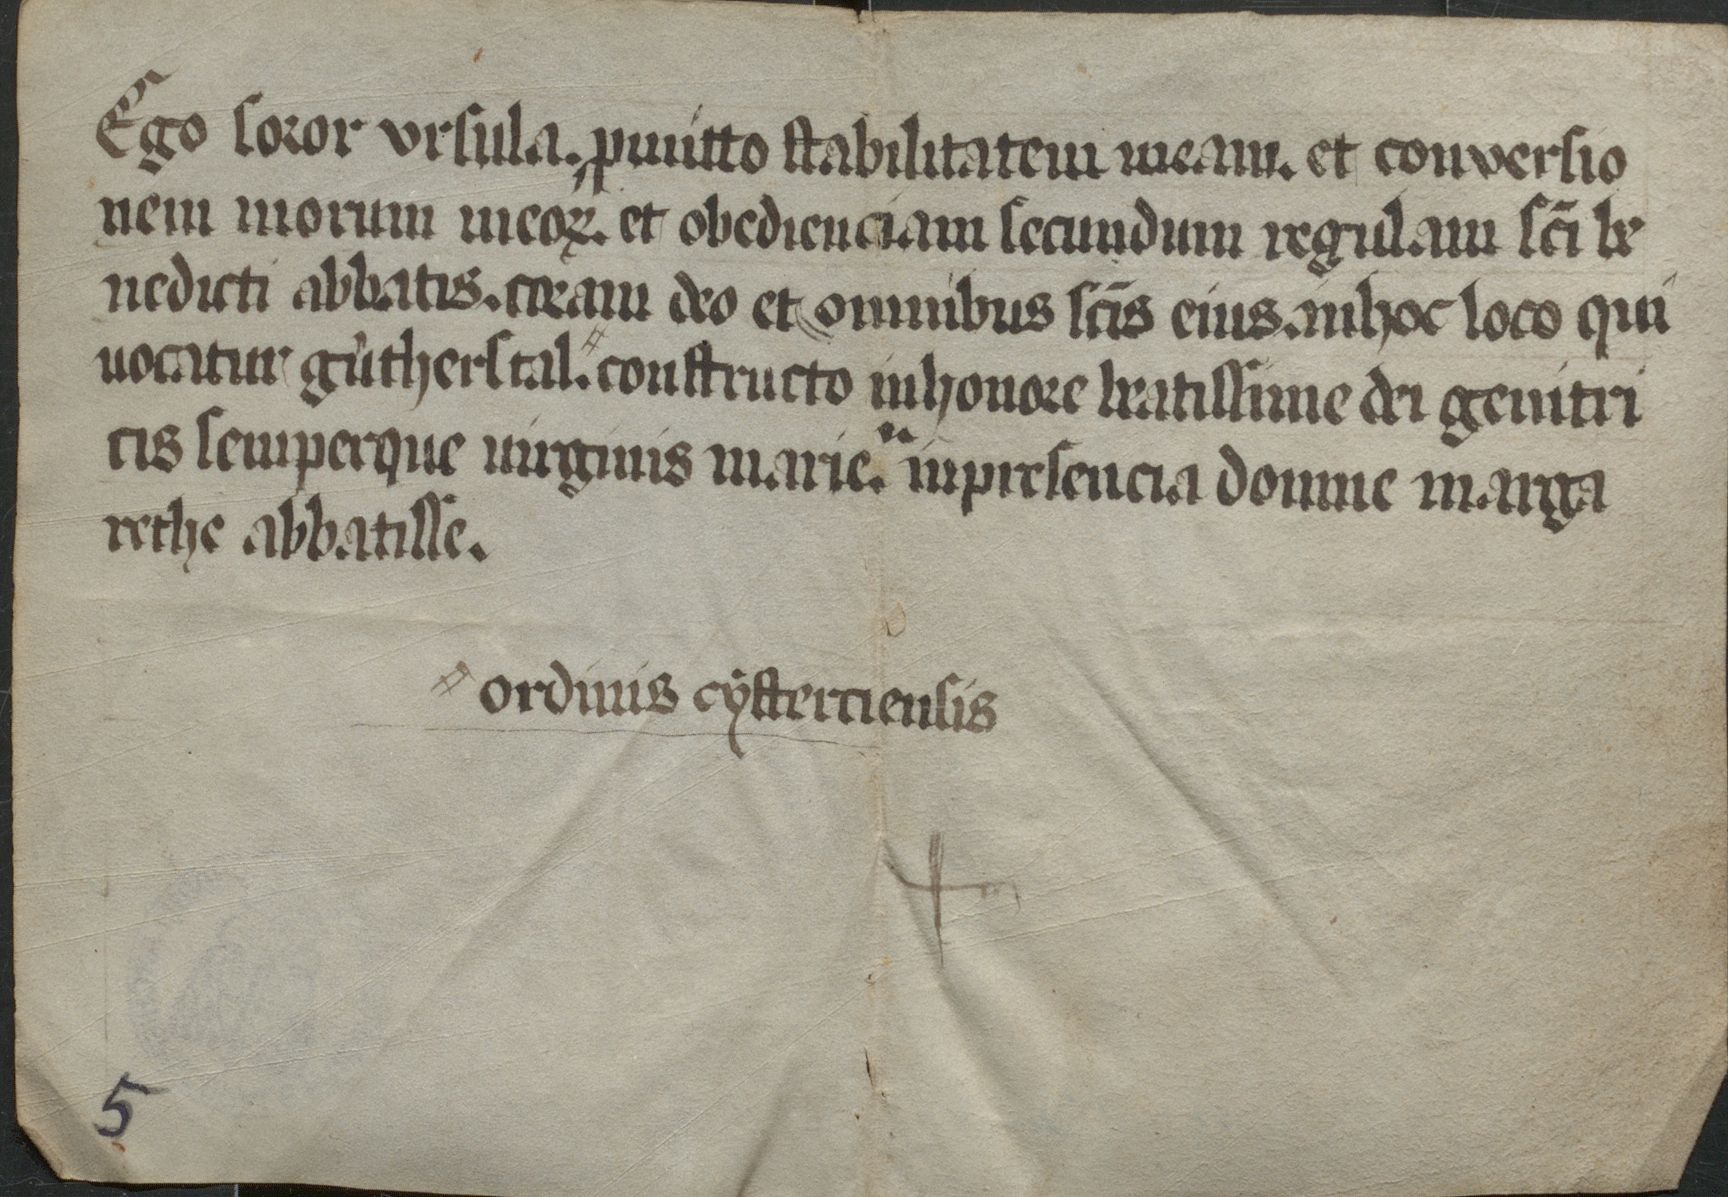 Ego soror vrsula. ꝓmitto stabilitatem meam. et conversio
nem morum meoꝝ. et obedienciam secundum regulam sc̄i be
nedicti abbatis. coram deo et omnibus sc̄is eius. inhoc loco qui
uocatur gu̍therstal. constructo inhonore beatissime dei genitri
cis semperque uirginis marie. inpresencia domne marga
rethe abbatisse.
ordinis cÿsterciensis
5